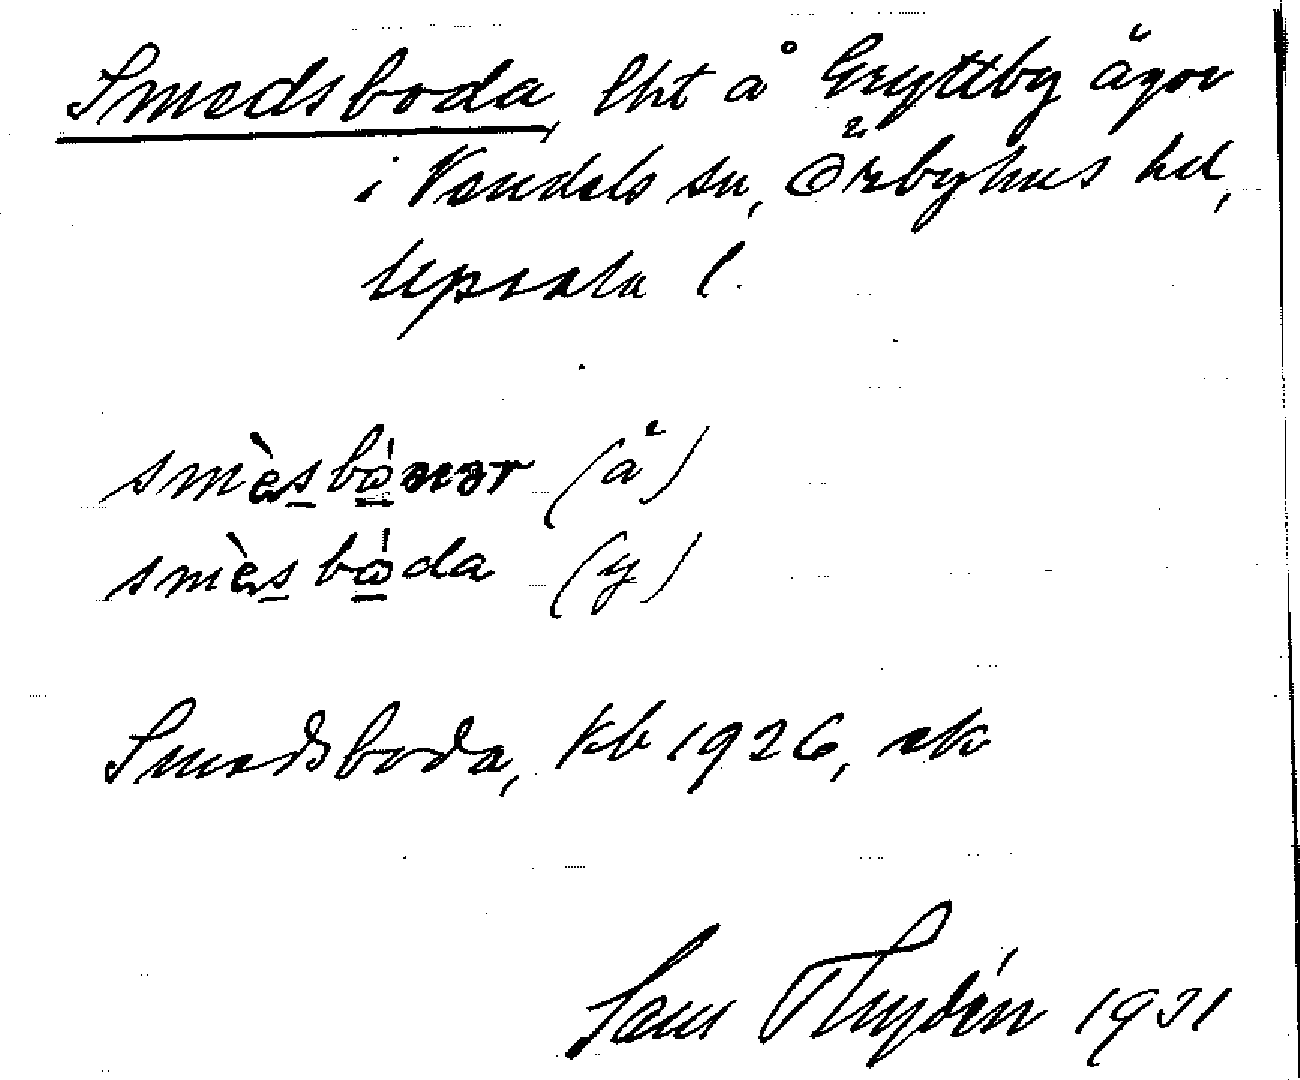 Smedsboda, lht å Gryttby ägor
i Vendels sn, Örbyhus hd,
Uppsala l.
(ä)
smèsbⱥ̀da (y)
Smedsboda, Kb 1926, ek
Thydén 1931